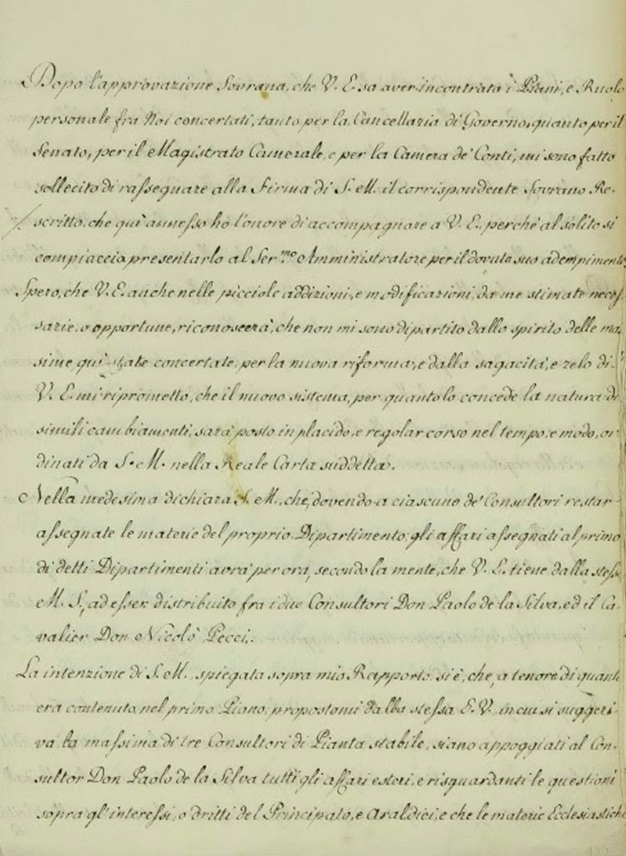 Dopo l'approvazione Sovrana, che V. E. sa aver incontrata i Piani, e Ruolo
personale fra Noi concertati, tanto per la Cancellaria di Governo, quanto per il
Senato, per il Magistrato Camerale, e per la Camera de' Conti, mi sono fatto
sollecito di rassegnare alla Firma di S. M. il corrispondente Sovrano Re-
scritto, che quì annesso ho l'onore di accompagnare a V. E., perchè al solito si
compiaccia presentarlo al Ser.mo Amministratore per il dovuto suo adempimento.
Spero, che V. E. anche nelle picciole addizioni, e modificazioni, da me stimate neces
sarie, o opportune, riconoscerà, che non mi sono dipartito dallo spirito delle mas
sime quì state concertate, per la nuova riforma, e dalla sagacità, e zelo di
V. E. mi riprometto, che il nuovo sistema, per quanto lo concede la natura di
simili cambiamenti, sarà posto in placido, e regolar corso nel tempo, e modo, or
dinati da S. M. nella Reale Carta suddetta.
Nella medesima dichiara S. M., che, dovendo a ciascuno de' Consultori restar
assegnate le materie del proprio Dipartimento, gli affari assegnati al primo
di detti Dipartimenti avrà per ora, secondo la mente, che V. E. tiene dalla stessa
M. S., ad esser distribuito fra i due Consultori Don Paolo de la Silva, ed il Ca
valier Don Nicolò Pecci.
La intenzione di S. M., spiegata sopra mio Rapporto si è, che, a tenore di quanto
era contenuto nel primo Piano, propostomi dalla stessa E. V., in cui si suggeri
va la massima di tre Consultori di Pianta stabile, siano appoggiati al Con
sultor Don Paolo de la Silva tutti gli affari esteri, e risguardanti le questioni
sopra gl'interessi, o dritti del Principato, e Araldici, e che le materie Ecclesiastiche